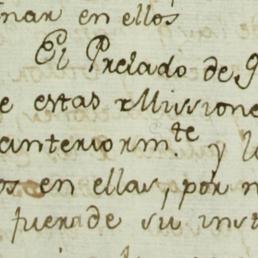 nar en ellos
El Prelado de g
e estas Missione
anteriorm.te y l
os en ellas, por n
fuera de su inst